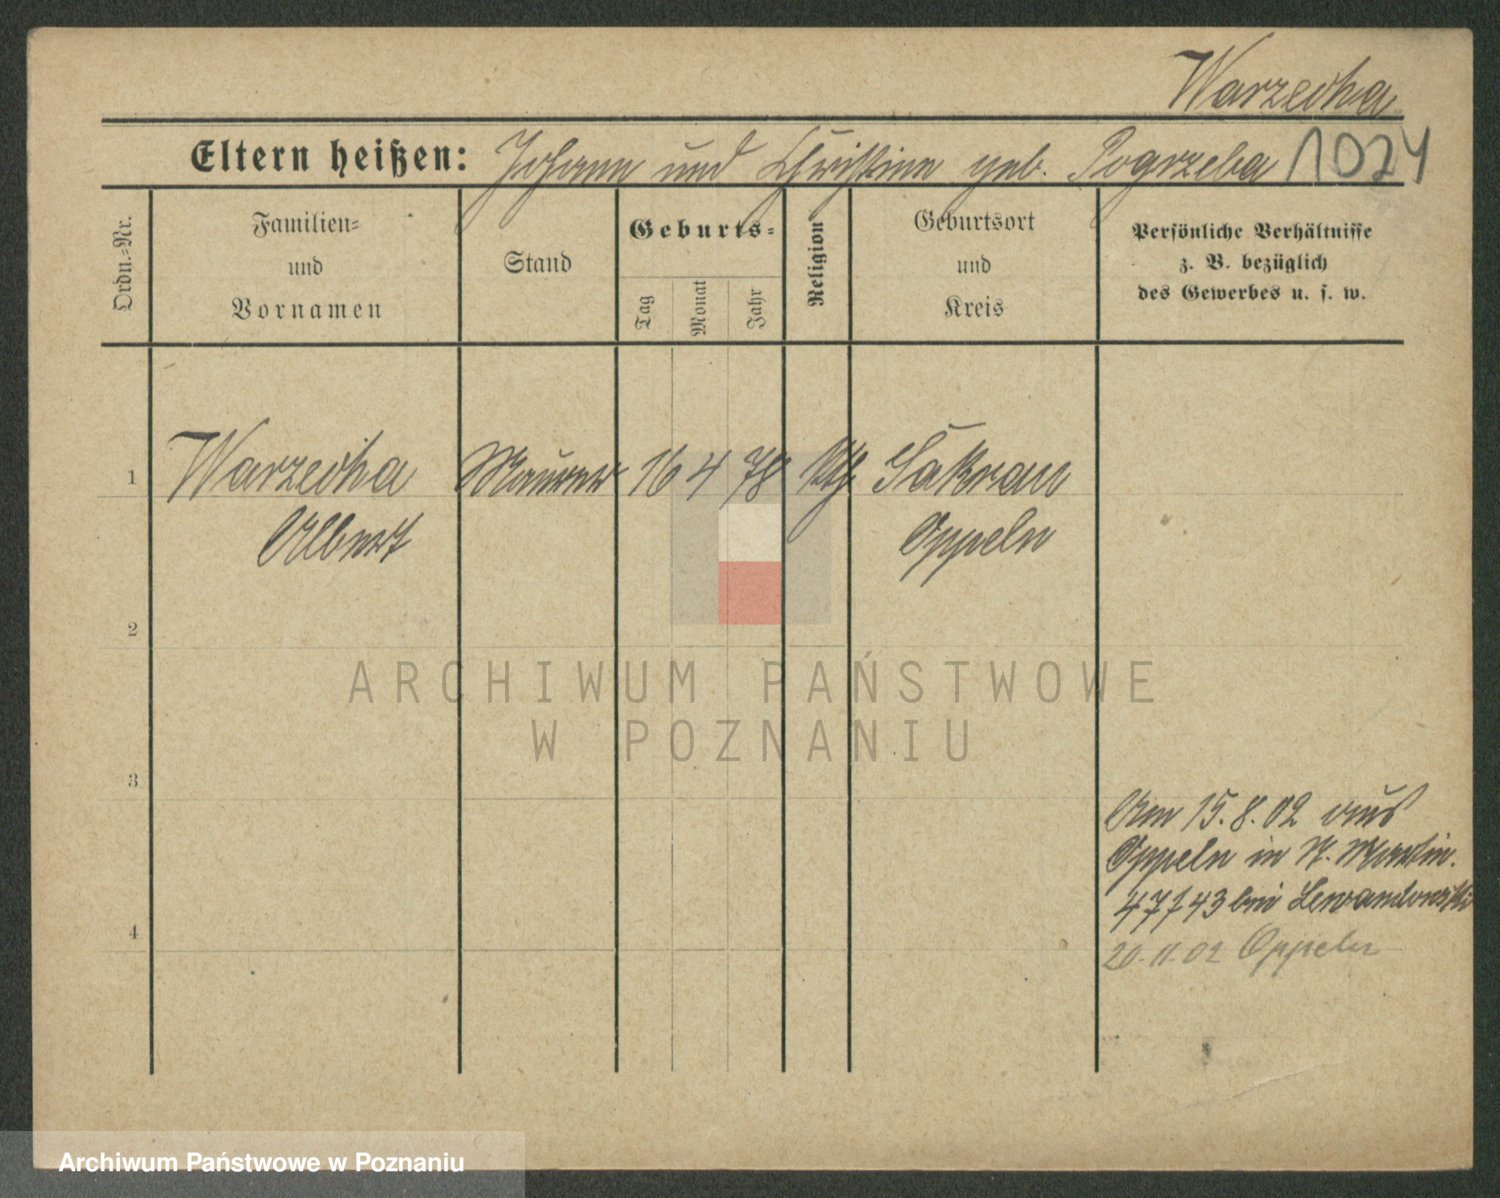 Warzecha
Eltern heißen: Johann und Christine geb. Pogrzeba 1024
Ordn.-Nr.
Familien-
und
Vornamen
Stand
Geburts-
Tag
Monat
Jahr
Religion
Geburtsort
und
Kreis
Persönliche Verhältnisse
z. B. bezüglich
des Gewerbes u. s. w.
1 Warzecha Maurer 16 4 78 kth. Sakrau
Albert Oppeln
2
ARCHIWUM PAŃSTWOWE
W POZNANIU
3
Am 15.8.02 aus
Oppeln in St. Martin.
47/43 bei Lewandowski
4
20.11.02 Oppeln
Archiwum Państwowe w Poznaniu